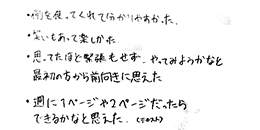 ・例を使ってくれて分かりやすかった。
・笑いもあって楽しかった
・思ってたほど緊張もせず、やってみようかなと
最初の方から前向きに思えた
・週に1ページや2ページだったら
できるかなと思えた。(テキスト)